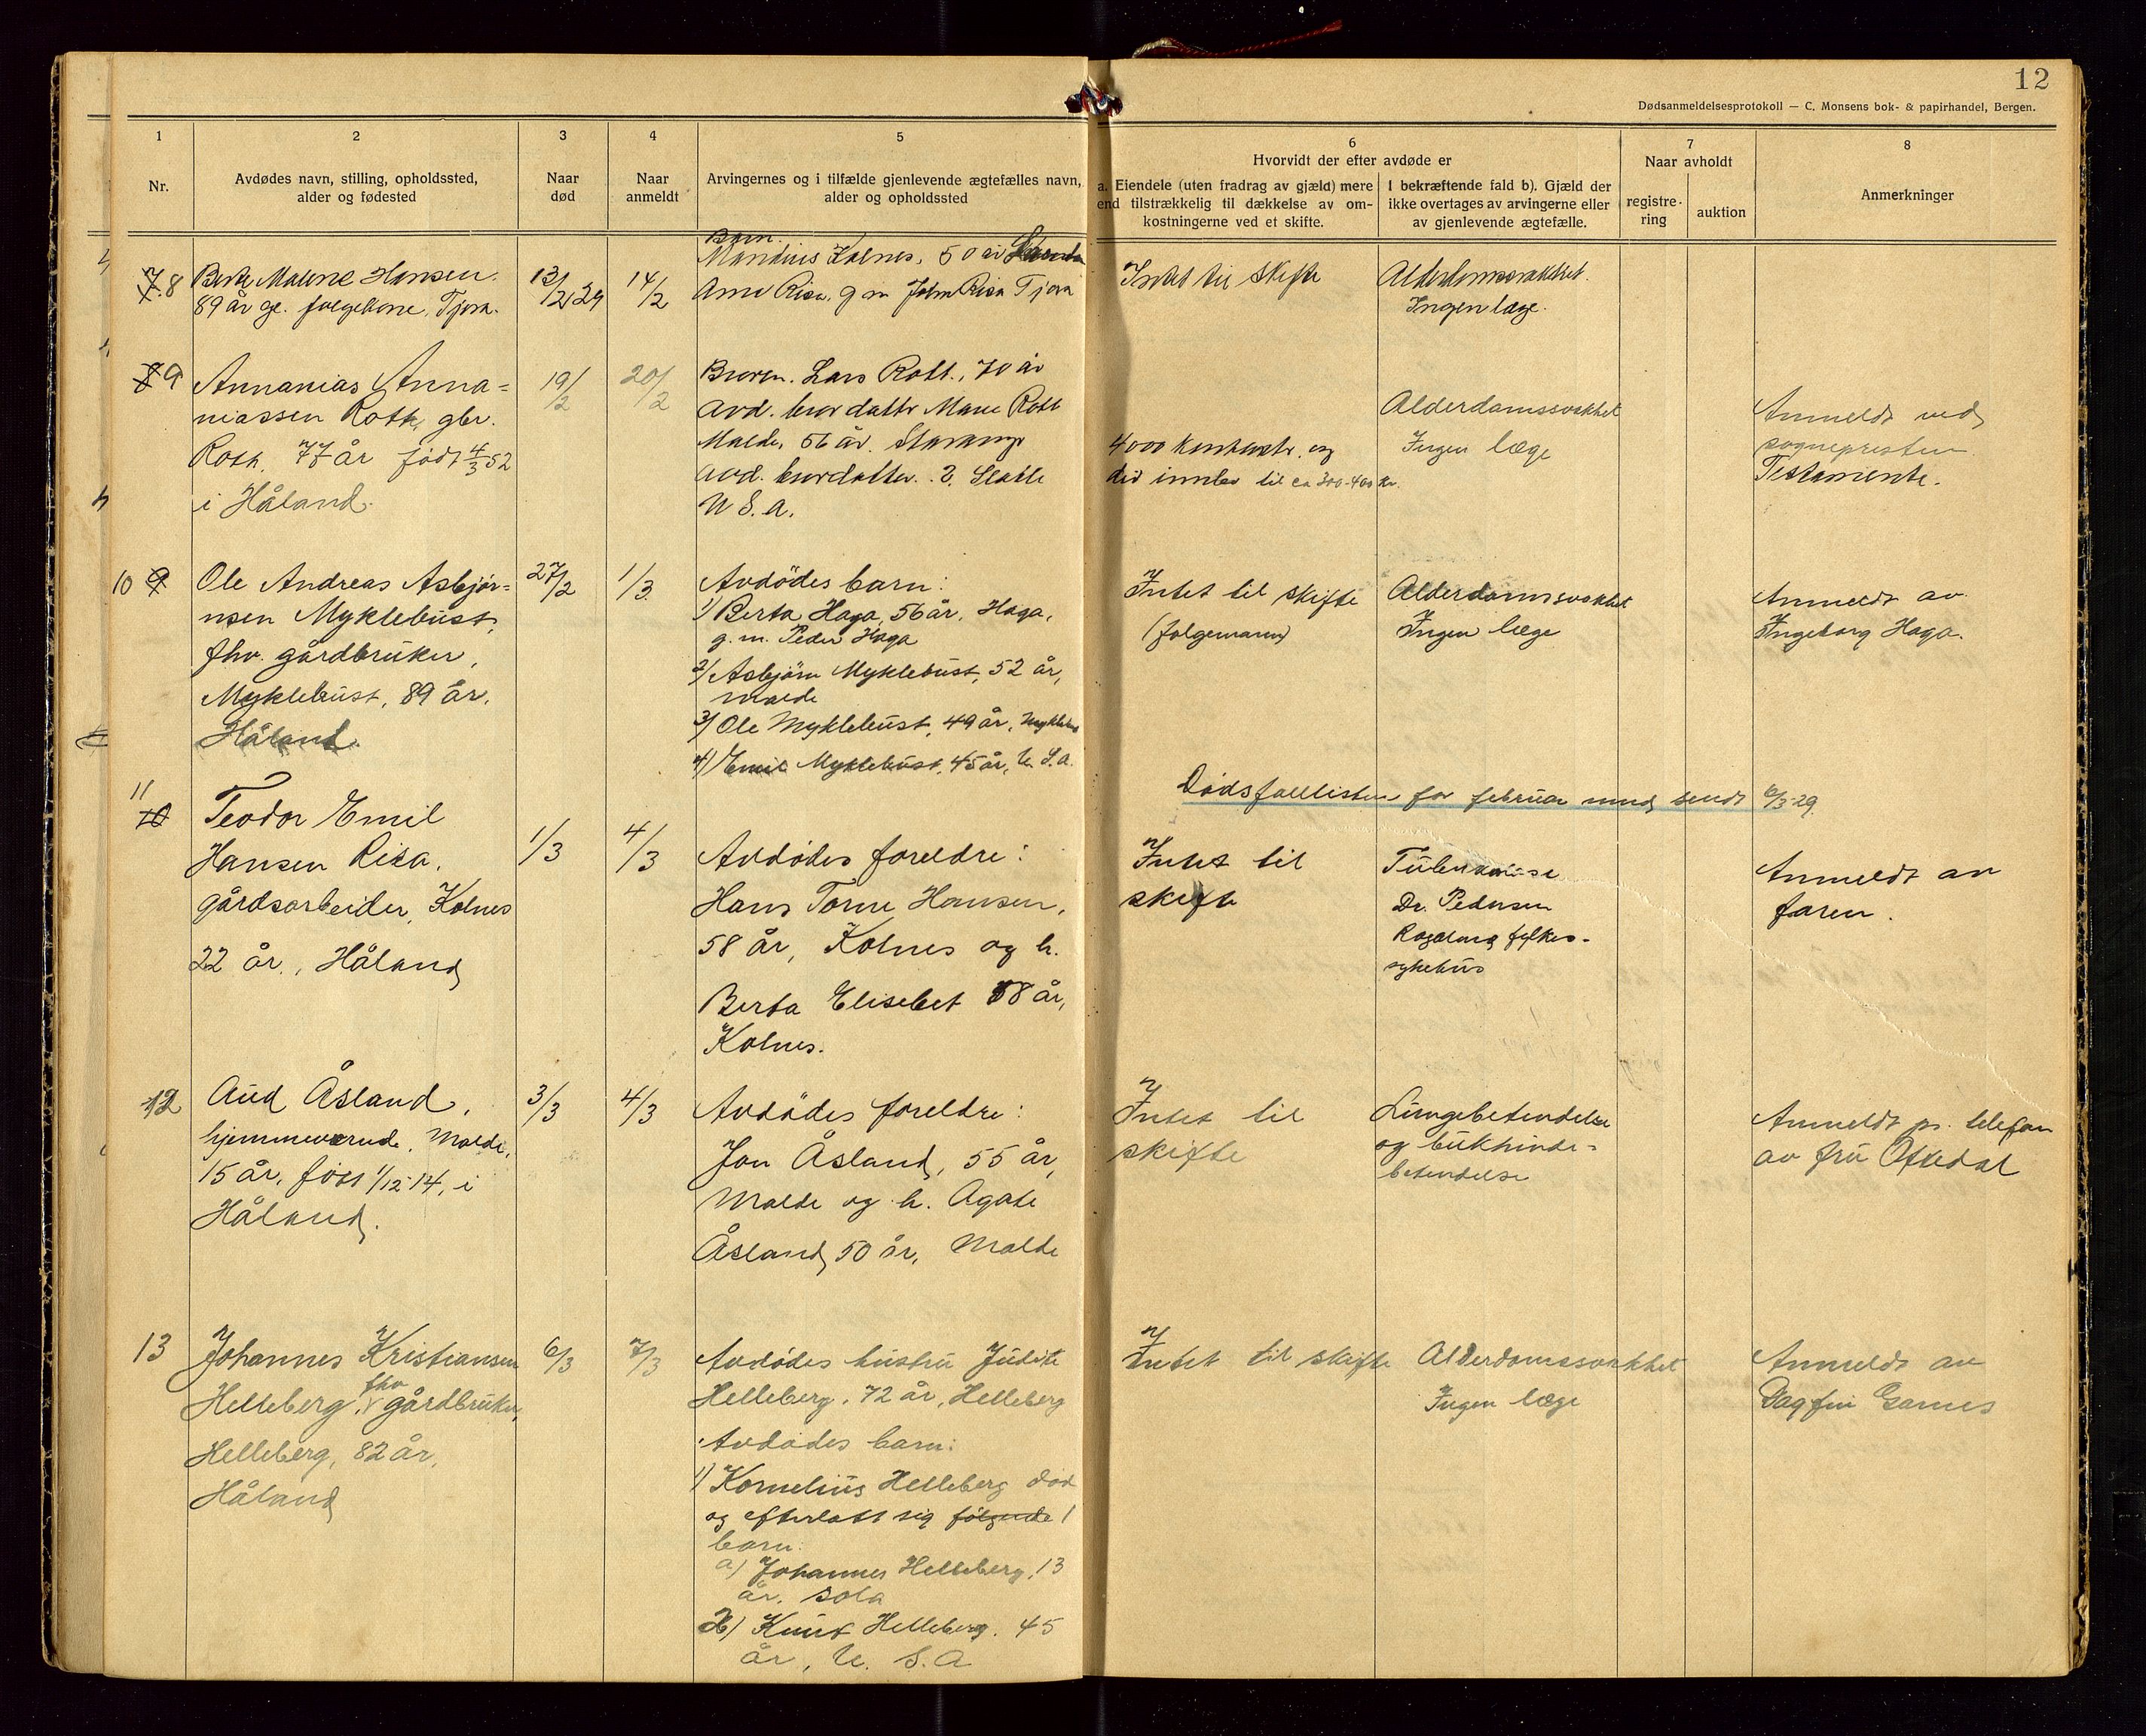 12
Dødsanmeldelsesprotokoll — C. Monsens bok- & papirhandel, Bergen.
1
Nr.
2
Avdødes navn, stilling, opholdssted,
alder og fødested
3
Naar
død
4
Naar
anmeldt
5
Arvingernes og i tilfælde gjenlevende ægtefælles navn,
alder og opholdssted
6
Hvorvidt der efter avdøde er
a. Eiendele (uten fradrag av gjæld) mere
end tilstrækkelig til dækkelse av om-
kostningerne ved et skifte.
I bekræftende fald b). Gjæld der
ikke overtages av arvingerne eller
av gjenlevende ægtefælle.
7
Naar avholdt
registre-
ring
auktion
8
Anmerkninger
7. 8
Berte Malene Hansen.
89 år ge. folgekone, Tjora.
13/2 29
14/2
Barn.
Mandius Kolnes, 50 år
Anne Risa, g m John Risa Tjora
Intet til skifte
Alderdomssvakhet.
Ingen læge.
8 9
Annanias Anna=
niassen Roth, gbr.
Roth, 77 år født 4/3 52
i Håland.
19/2
20/2
Broren. Lars Rott., 70 år
Avd. brordatter Marie Rott
Malde, 56 år. Stavanger
Avd. brordatter. 2, Seattle
U S. A.
4000 kontanter og
div innbo til ca 300-400 kr.
Alderdomssvakhet
Ingen læge
Anmeldt ved
sognepresten
Testamente.
10 9
Ole Andreas Asbjør=
nsen Myklebust,
fhv. gårdbruker,
Myklebust, 89 år.
Håland.
27/2
1/3
Avdødes barn:
1) Berta Haga, 56 år, Haga,
g. m. Peder Haga
2) Asbjørn Myklebust, 52 år,
Malde
3) Ole Myklebust, 49 år, Myklebust
4) Emil Myklebust, 45 år, U. S. A.
Intet til skifte
(folgemann)
Alderdomssvakhet
Ingen læge
Anmeldt av
Ingeborg Haga.
Dødsfallisten for februar mnd sendt 6/3-29.
11
10
Teodor Emil
Hansen Risa,
gårdsarbeider, Kolnes
22 år., Håland
1/3
4/3
Avdødes foreldre:
Hans Torne Hansen,
58 år, Kolnes og h.
Berta Elisebet 58 år,
Kolnes.
Intet til
skifte
Tuberkulose
Dr. Pedersen
Rogaland fylkes-
sykehus
Anmeldt av
faren.
12
Aud Åsland,
hjemmeværende, Malde,
15 år, født 1/12-14, i
Håland.
3/3
4/3
Avdødes foreldre:
Jon Åsland, 55 år,
Malde og h. Agate
Åsland, 50 år, Malde
Intet til
skifte
Lungebetendelse
og bukhinde-
betendelse
Anmeldt pr. telefon
av fru Oftedal
13
Johannes Kristiansen
Helleberg, fhv gårdbruker,
Helleberg, 82 år,
Håland
6/3
7/3
Avdødes hustru Judite
Helleberg, 72 år, Helleberg
Avdødes barn:
1) Kornelius Helleberg død
og efterlatt sig følgende 1
barn:
a) Johannes Helleberg, 13
år. Sola
2) Knut Helleberg. 45
år, U. S. A
Intet til skifte
Alderdomssvakhet
Ingen læge
Anmeldt av
Dagfin Garnes